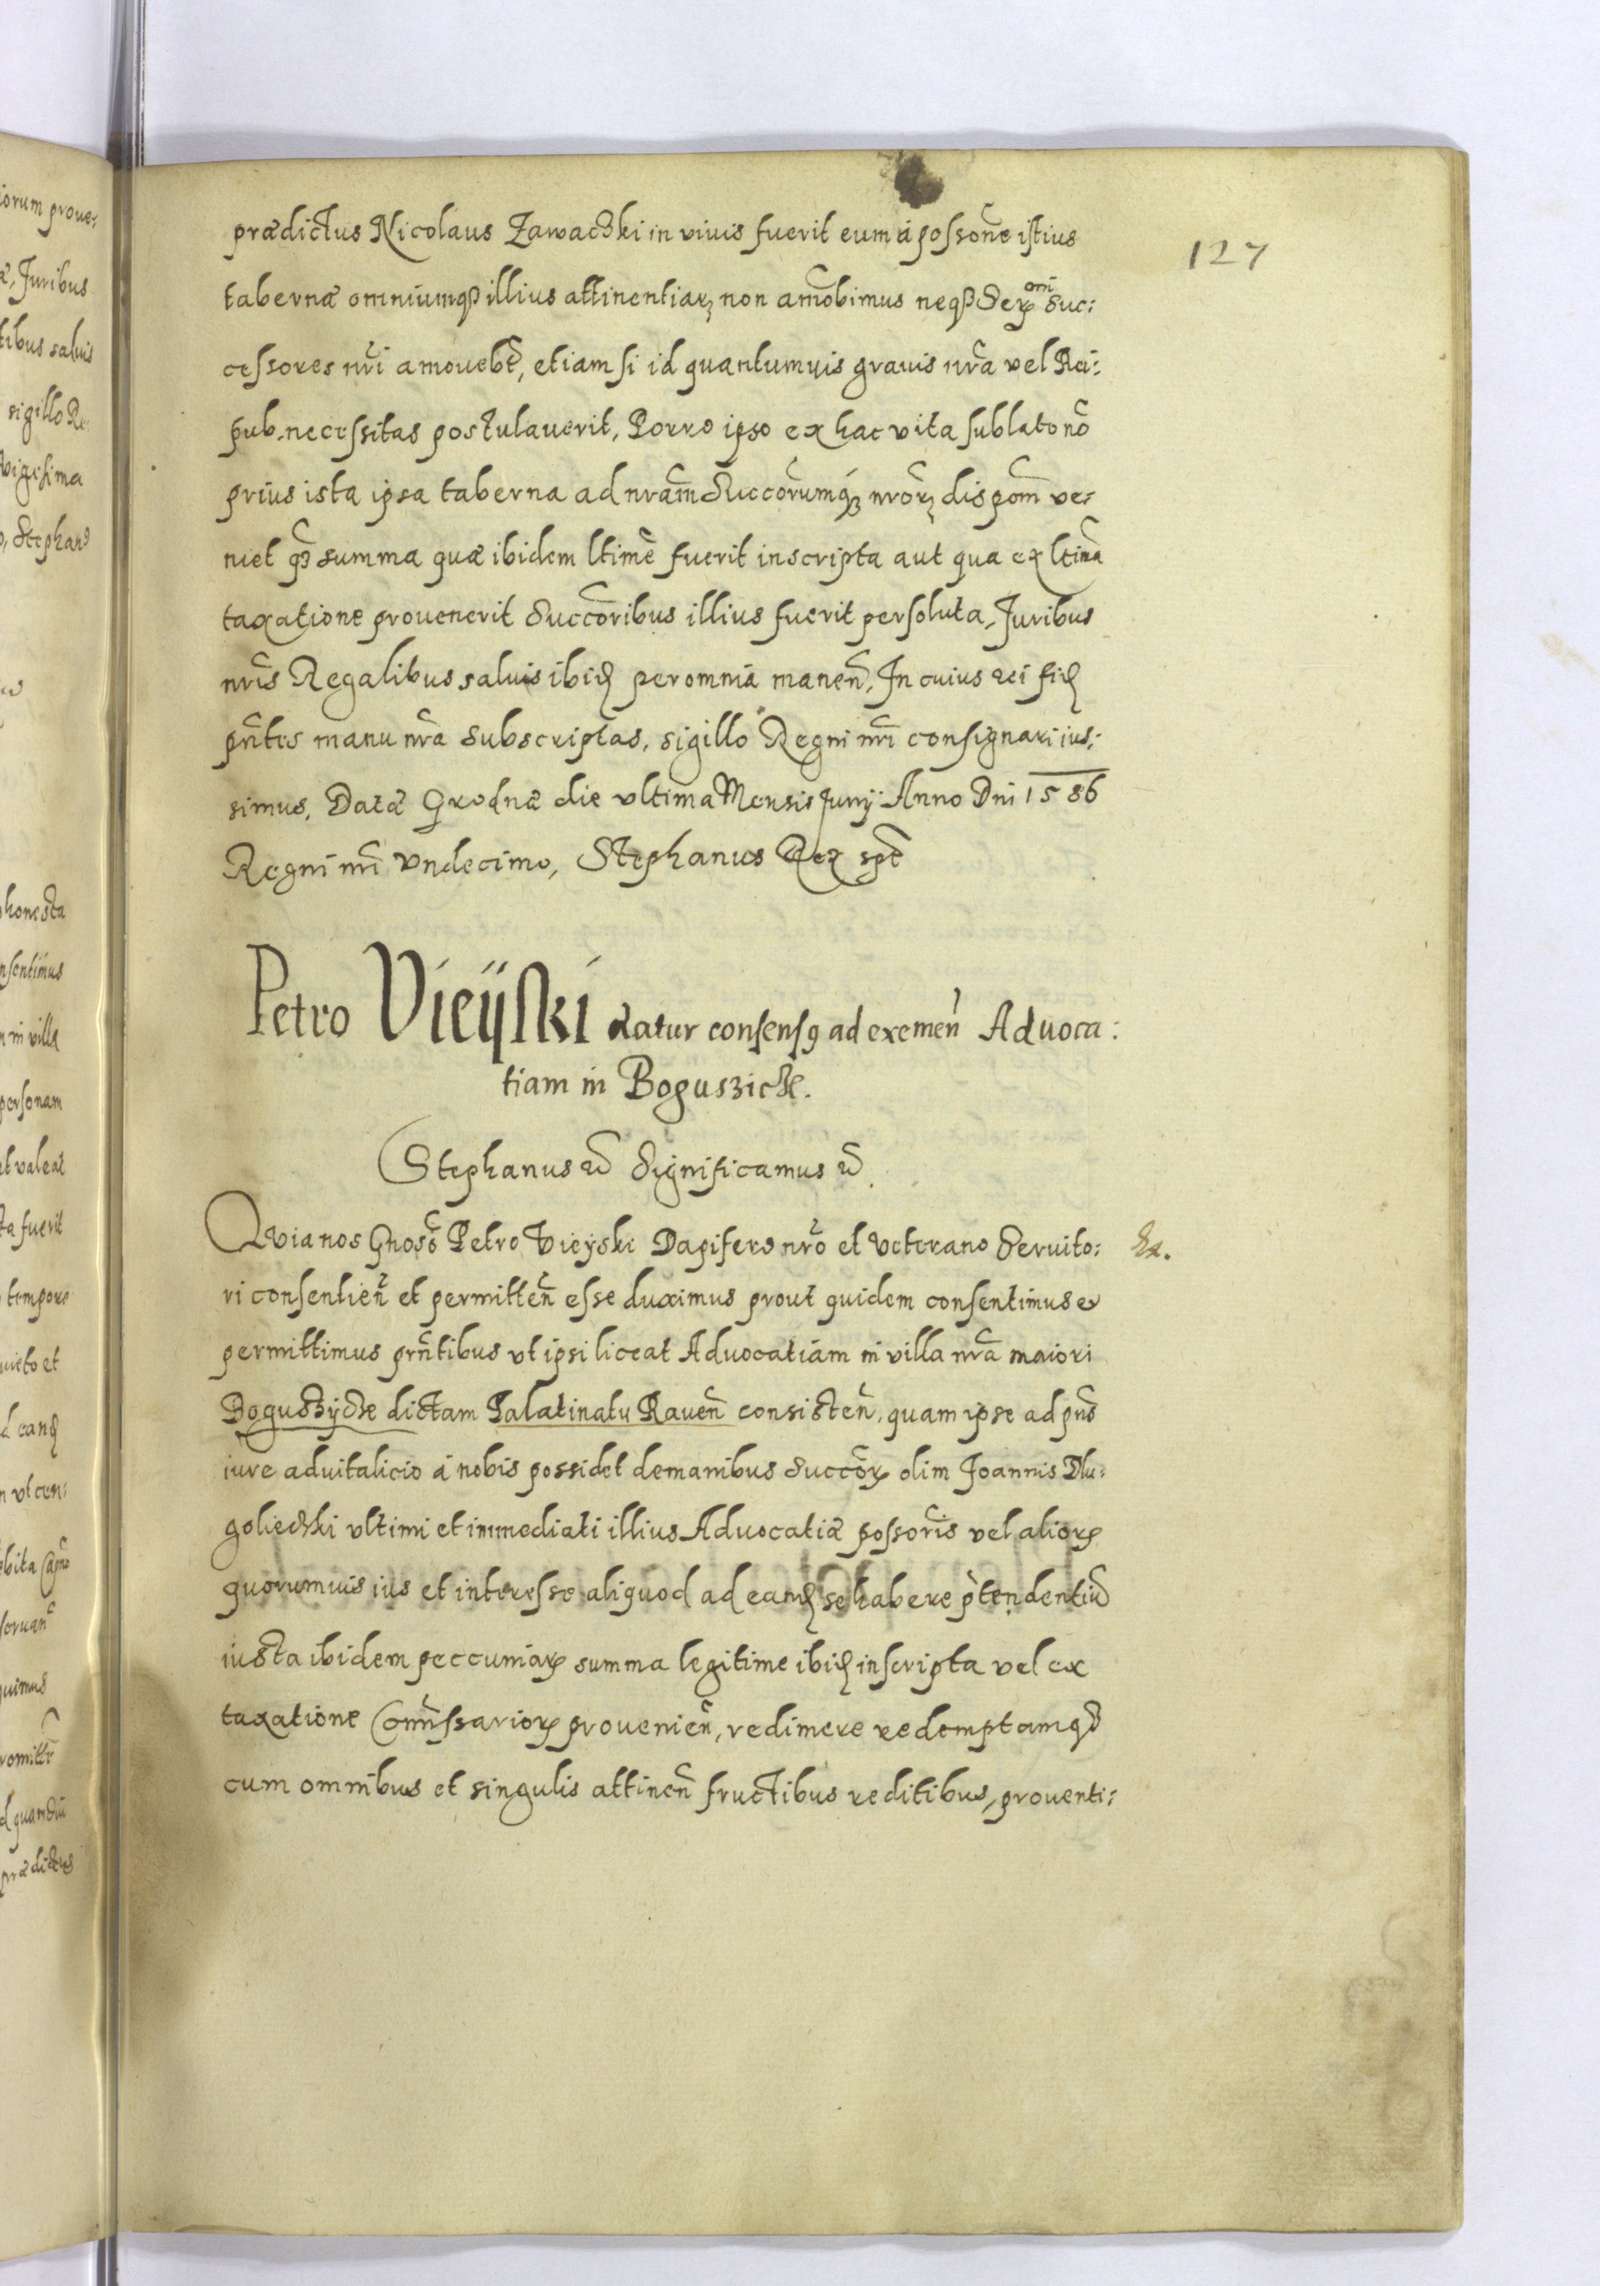 127
prædictus Nicolaus Zawaczki in viuis fuerit eum á possone istius
tabernæ omniumq illius attinentiar non amobimus neq Ser omi Suc:
cessores nri amouebt, etiam si id quantumuis grauis nra vel Rei:
pub. necessitas postulauerit, Porro ipso ex hac vita sublato nõ
prius ista ipsa taberna ad nram Succorumq nror dispom ve:
niet summa quæ ibidem ltime fuerit inscripta aut qua ex ltima
taxatione prouenerit Succoribus illius fuerit persoluta, Juribus
nris Regalibus saluis ibid per omnia manen, In cuius rei fid
pntes manu nra Subscriptas, sigillo Regni nri consignari ius:
simus, Datæ Grodnæ die vltima Mensis Junij Anno Dni 1586
Regni nri Vndecimo, Stephanus Rex spt
Petro Vieÿski datur consensq ad exemen Aduoca:
tiam in Boguszicze.
Stephanus Significamus
Quia nos Gnoso Petro Vieÿski Dapifero nro et Veterano Seruito: Ex.
ri consentien et permitten esse duximus prout quidem consentimus et
permittimus pntibus vt ipsi liceat Aduocatiam in villa nra maiori
Boguszÿcze dictam Palatinatu Rauen consisten, quam ipse ad pns
iure aduitalicio á nobis possidet de manibus Succor olim Joannis Dlu:
goliećzki vltimi et immediati illius Aduocatiæ possoris vel alior
quorumuis ius et interesse aliquod ad eand se habere ptendentiũ
iusta ibidem peccuniar summa legitime ibid inscripta vel ex
taxatione Comissarior prouenien, redimere redemptamq
cum omnibus et singulis attinen fructibus reditibus, prouenti: